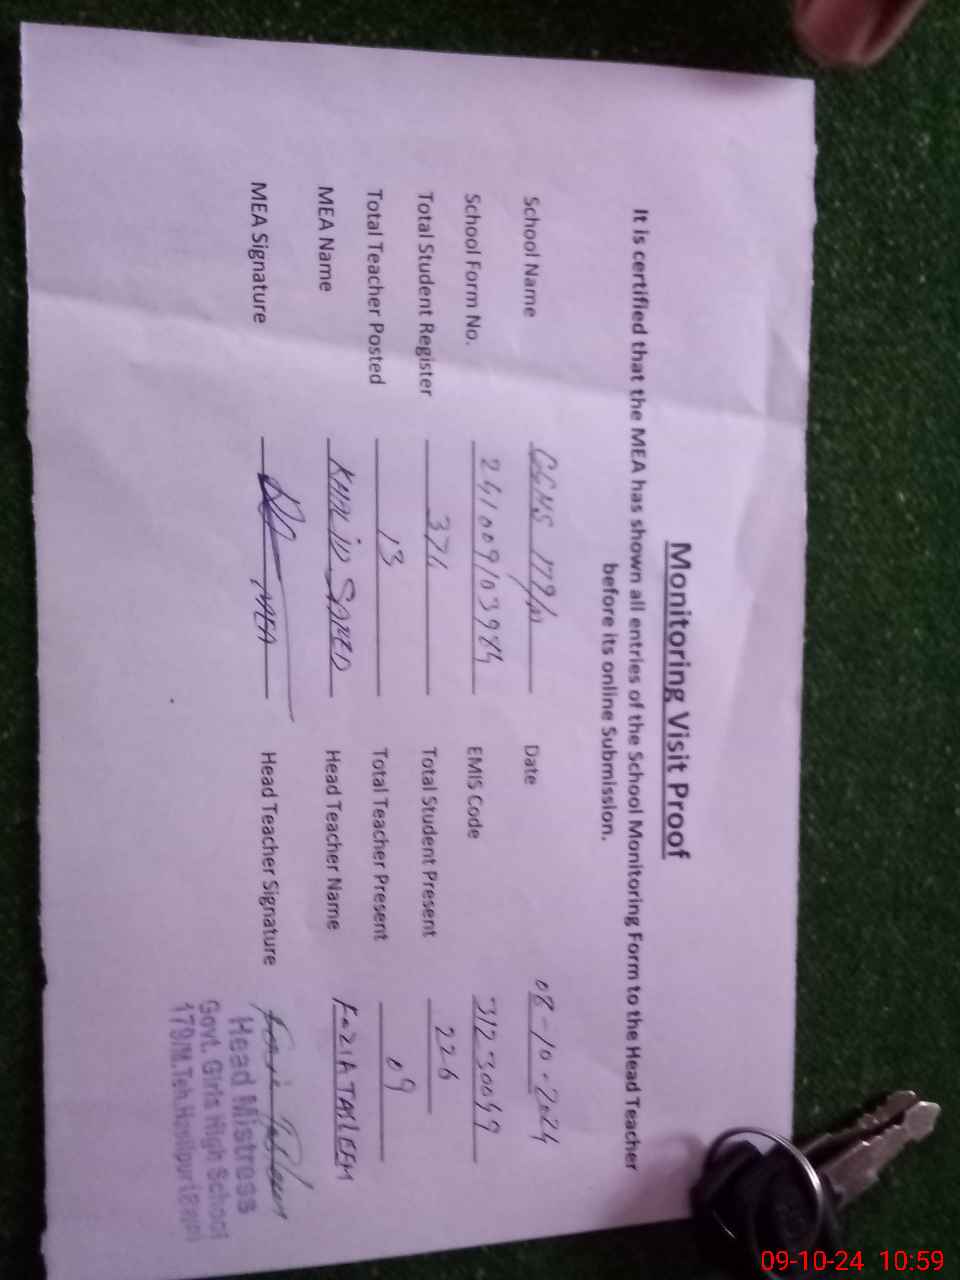 Monitoring Visit Proof
It is certified that the MEA has shown all entries of the School Monitoring Form to the Head Teacher
before its online Submission.
School Name GGHS 179/M Date 08-10-2024
School Form No. 241009103984 EMIS Code 31230049
Total Student Register 376 Total Student Present 226
Total Teacher Posted 13 Total Teacher Present 09
MEA Name KHALID SAEED Head Teacher Name FOZIA TASLEEM
MEA Signature MEA Head Teacher Signature
Head Mistress
Govt. Girls High School
179/M.Teh.Hasilpur(Bwp)
09-10-24 10:59